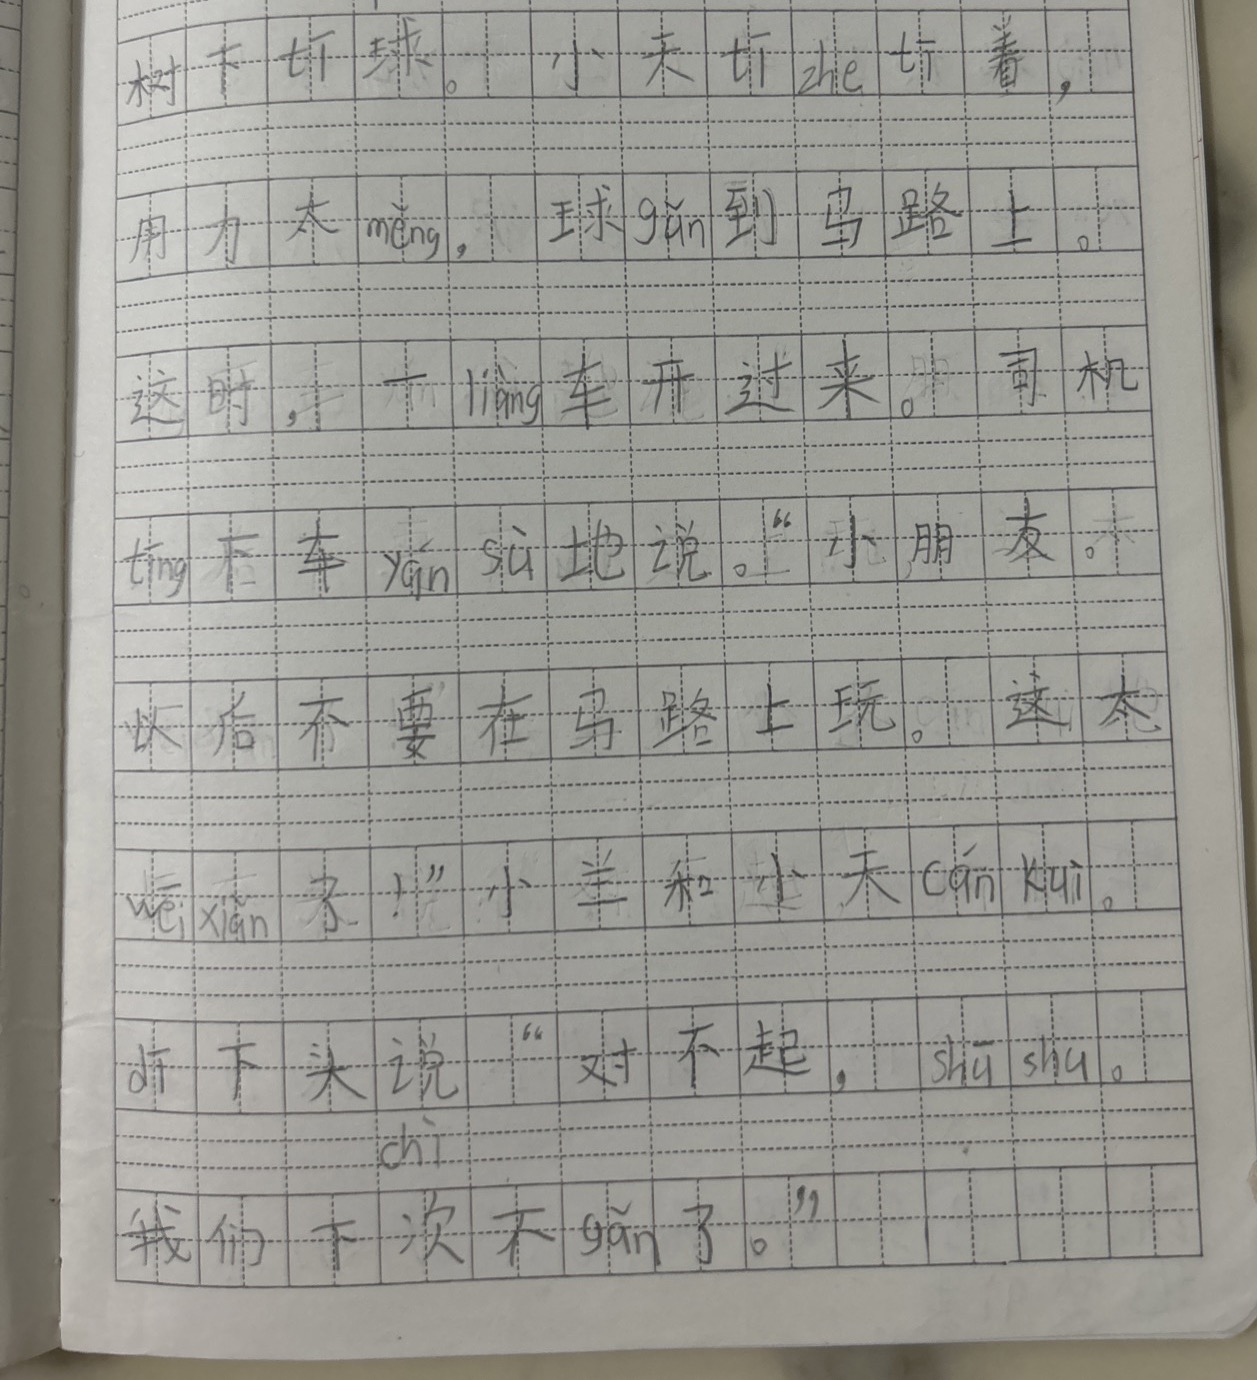 树下tī球。小天tī zhe tī着，
用力太měng，球gǔn到马路上。
这时，一liàng车开过来。司机
tíng下车yán sù地说。“小朋友。
以后不要在马路上玩。这太
wēi xiǎn了！”小羊和小天cán kuì。
dī下头说“对不起，shū shu。
chì
我们下次不gǎn了。”